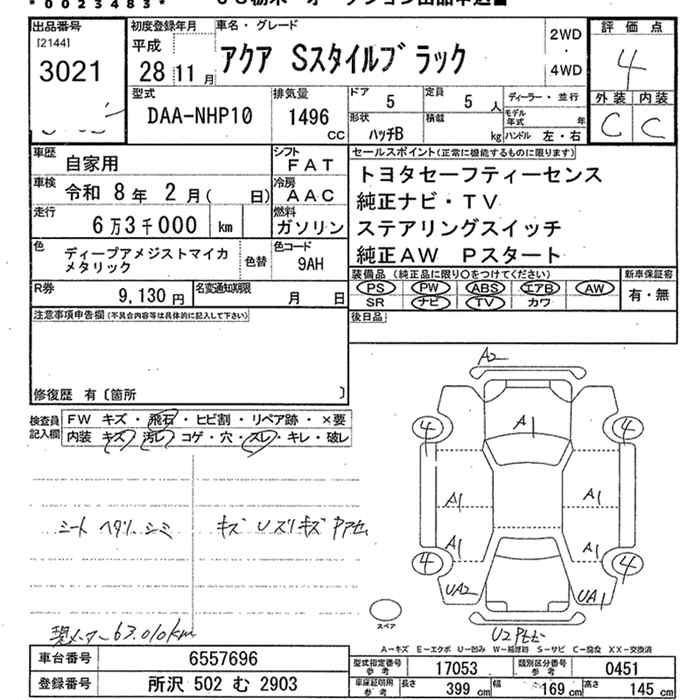 * 0 0 2 3 4 8 3 *
出品番号 初度登録年月 車名・グレード 2WD 評価点
[2144] 平成 ・
3021 28 11月 アクア Sスタイルブラック 4WD 4
型式 排気量 ドア 5 定員 5人 ディーラー・並行 外装 内装
DAA-NHP10 1496 cc 形状 ハッチB 積載 kg モデル年式 年 C C
ハンドル 左・右
車歴 自家用 シフト FAT セールスポイント(正常に機能するものに限ります)
車検 令和 8年 2月( 日) 冷房 AAC トヨタセーフティーセンス
走行 6万3千000 km 燃料 ガソリン 純正ナビ・TV
ステアリングスイッチ
色 ディープアメジストマイカ 色替 色コード 純正AW Pスタート
メタリック 9AH
装備品(純正品に限り○をつけてください) 新車保証書
R券 9,130円 名変通知期限 月 日 PS PW ABS エアB AW 有・無
SR ナビ TV カワ
注意事項申告欄(不具合内容等は具体的に記入して下さい) 後日品
修復歴 有〔箇所 〕
検査員 FW キズ・飛石・ヒビ割・リペア跡・×要
記入欄 内装 キズ・汚レ・コゲ・穴・スレ・キレ・破レ
A2
A1
4 4
A1 A1
A1 A1
4 4
UA2 UA1
シート ヘタリ シミ キズ Uズリキズ
63,010km
スペア
U2
A-キズ E-エクボ U-凹み W-補修跡 S-サビ C-腐食 XX-交換済
車台番号 6557696 型式指定番号 参考 17053 類別区分番号 参考 0451
登録番号 所沢 502 む 2903 車庫証明用 参考 長さ 399 cm 幅 169 cm 高さ 145 cm